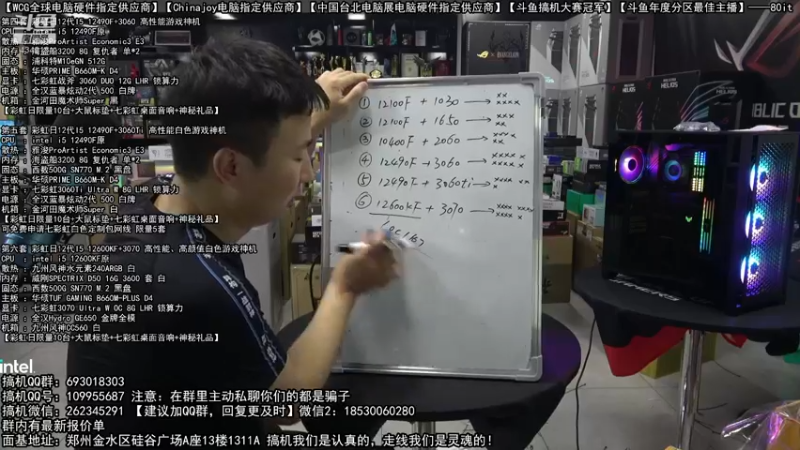 【WCG全球电脑指定供应商】【Chinajoy电脑指定供应商】【中国台北电脑展电脑硬件指定供应商】【斗鱼搞机大赛冠军】【斗鱼年度分区最佳主播】——80it
12代I5 12490F+3060 高性能游戏神机
CPU ： intel i5 12490F原
ProArtist Economic3 E3
3200 8G 复仇者 单*2
固态： 浦科特M10eGN 512G
主板 ： 华硕PRIME B660M-K D4
显卡 ： 七彩虹战斧 3060 DUO 12G LHR 锁算力
电源 ： 全汉蓝暴炫动2代 500 白牌
机箱 ： 金河田魔术师Super 黑
【彩虹日限量10台+大鼠标垫+七彩虹桌面音响+神秘礼品】
第五套 彩虹日12代I5 12490F+3060Ti 高性能白色游戏神机
CPU ： intel i5 12490F原
散热 ： 雅浚ProArtist Economic3 E3
3200 8G 复仇者 单*2
固态： 西数500G SN770 M 2 黑盘
主板 ： 华硕PRIME B660M-K D4
显卡 ： 七彩虹3060Ti Ultra W 8G LHR 锁算力
电源 ： 全汉蓝暴炫动2代 500 白牌
机箱 ： 金河田魔术师Super 白
【彩虹日限量10台+大鼠标垫+七彩虹桌面音响+神秘礼品】
可免费申请七彩虹白色定制包网线 限量5套
第六套 彩虹日12代I5 12600KF+3070 高性能、高颜值白色游戏神机
CPU ： intel i5 12600KF原
散热 ： 九州风神水元素240ARGB 白
内存 ： 威刚SPECTRIX D50 16G 3600 套 白
固态： 西数500G SN770 M 2 黑盘
主板 ： 华硕TUF GAMING B660M-PLUS D4
显卡 ： 七彩虹3070 Ultra W OC 8G LHR 锁算力
电源 ： 全汉Hydro GE650 金牌全模
机箱 ： 九州风神CC560 白
【彩虹日限量10台+大鼠标垫+七彩虹桌面音响+神秘礼品】
① 12100F + 1030 → xx xxxx
② 12100F + 1650 → xxx xx
③ 10600F + 2060 → xxx x xx
④ 12490F + 3060 → xxxx x xx
⑤ 12490F + 3060ti → xxx
⑥ 12600KF + 3070 → xxxx
intel
搞机QQ群：693018303
搞机QQ号：109955687 注意：在群里主动私聊你们的都是骗子
搞机微信：262345291 【建议加QQ群，回复更及时】微信2：18530060280
群内有最新报价单
面基地址：郑州金水区硅谷广场A座13楼1311A 搞机我们是认真的，走线我们是灵魂的！